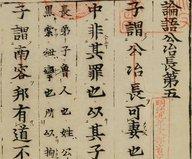 論語公冶長第五
子謂公冶長可妻也
中非其罪也以其子
長弟子魯人也姓公
黑索紲攣也所以拘
子謂南容邦有道不